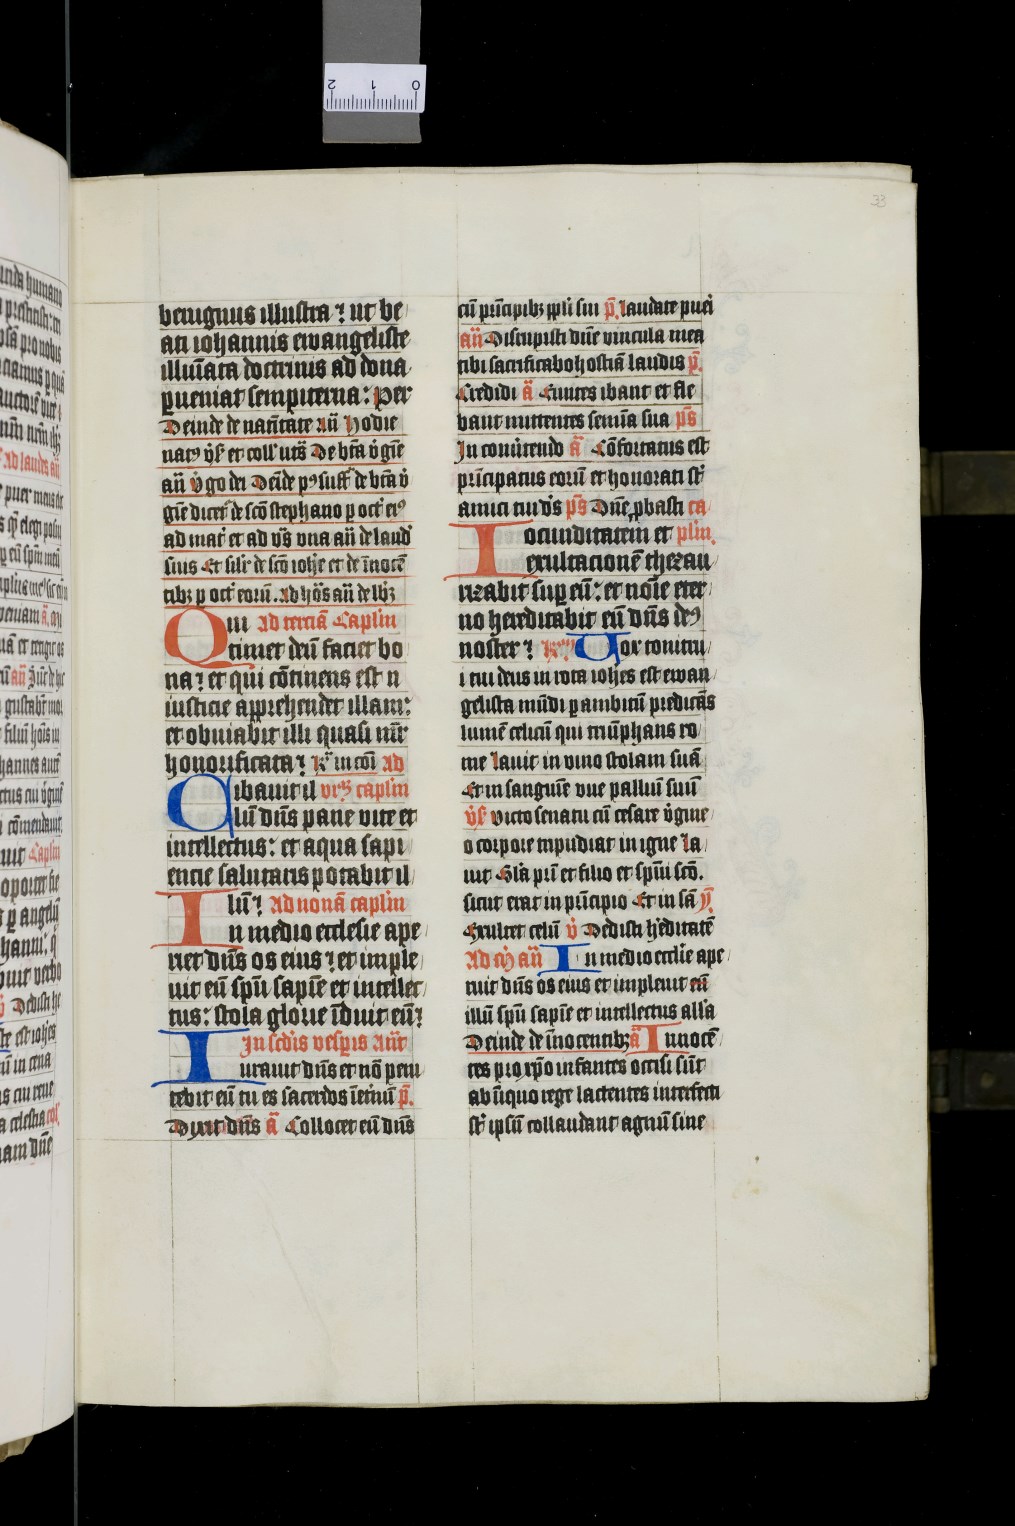 33
benignus illustra ⁊ ut be
ati iohannis ewangeliste
illuīata doctrinis ad dona
ꝑueniat sempiterna: Per
Deinde de natiītate añ Hodie
natꝰ v̓s̄ et coll' ut sᷣ De bt̄a v̓gīe
añ v̓go dei Deīde pꝰ suff' de bt̄a v̓
gīe dicet' de scō stephano ꝑ oct' eiꝰ
ad mat' et ad vs̄ una añ de laud'
suis Et sil'r de scō ioh̄e et de īnocē
tibꝫ ꝑ oct' eorū. Ad hōs añ de lbꝫ
Qui Ad terciā Capl'm
timet deū faciet bo
na⁊ et qui cōtinens est
iusticie apprehendet illam:
et obuiabit illi quasi mr̄
honorificata⁊ R̓ in coī Ad
Cibauit il vi'ꝫ capl'm
lū dn̄s pane vite et
intellectus: et aqua sapi
entie salutaris potabit il
lū⁊ Ad nonā capl'm
In medio ecclesie ape
riet dn̄s os eius ⁊ et imple
uit eū spū sapīe et intellec
tus: stola glorie īduit eū⁊
In sc'dis vesꝑis Añt
Iurauit dn̄s et nō peni
tebit eū tu es sacerdos īet'nū p̄.
Dixit dn̄s ā Collocet eū dn̄s
cū prīcipibꝫ ppl'i sui p̄. laudate pu'i
añ Disrupisti dn̄e vincula mea
tibi sacrificabo hostiā laudis p̄.
Credidi ā Euntes ibant et fle
bant mittentes semīa sua ps̄
In conu'tendo ā Cōfortatus est
prīcipatus eorū et honorati st̄
amici tui d's ps̄ Dn̄e ꝓbasti ca
Iocunditatem et pl'm.
exultacionē thezau
rizabit suꝑ eū: et noīe eter
no hereditabit eū dn̄s deꝰ
noster⁊ R̓ Vox tonitru
i tui deus in rota ioh̄es est ewan
gelista mūdi ꝑ ambitū predicās
lumē celicū qui triūphans ro
me lauit in vino stolam suā
Et in sanguīe vue palliū suū
v̓s̄ victo senatu cū cesare v̓gine
o corpore tripudiat in igne la
uit Gl'a pr̄i et filio et spūi scō.
sicut erat in prīcipio Et in sā y᷒.
Exultet celū v̓ Dedisti h'editatē
Ad m̄ añ In medio eccl'ie ape
ruit dn̄s os eius et impleuit eū
illū spū sapīe et intellectus all'a
Deinde de īnocentibꝫ ā Innocē
tes pro xp̄o infantes occisi sūt
ab īiquo rege lactentes interfecti
st̄ ipsū collaudant agnū sine